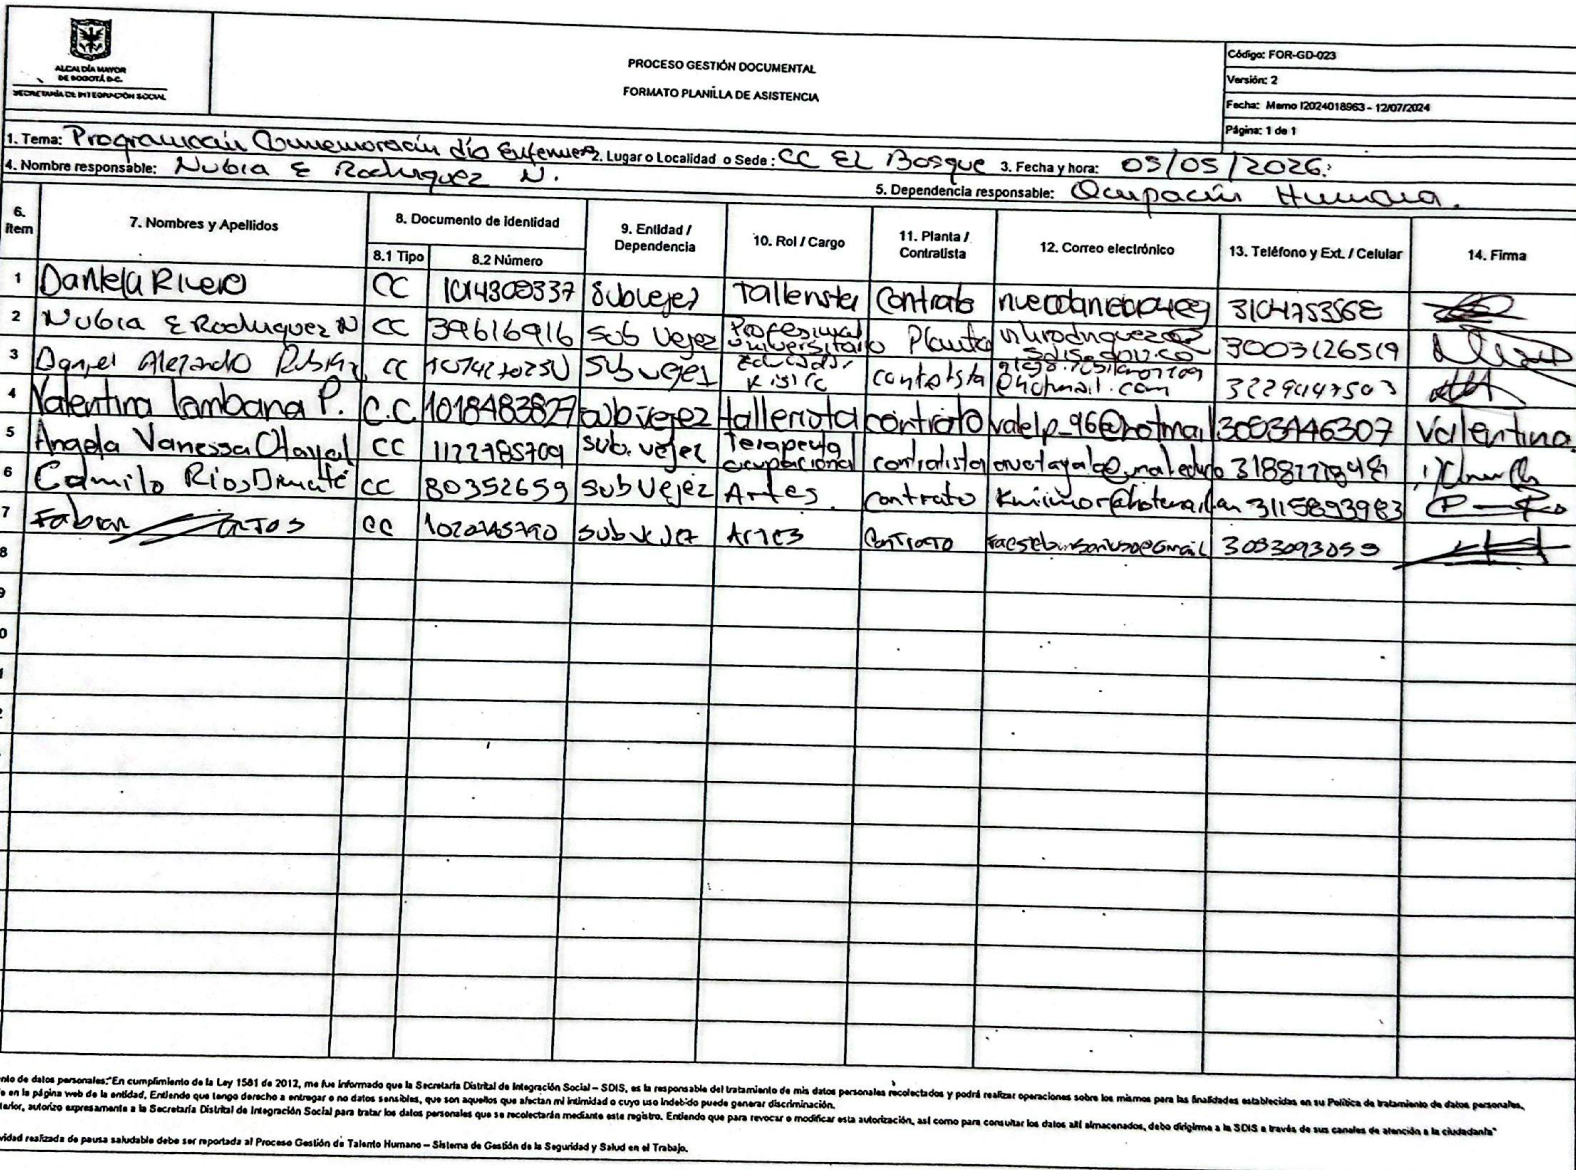 ALCALDÍA MAYOR
DE BOGOTÁ D.C.
SECRETARÍA DE INTEGRACIÓN SOCIAL
PROCESO GESTIÓN DOCUMENTAL
FORMATO PLANILLA DE ASISTENCIA
Código: FOR-GD-023
Versión: 2
Fecha: Memo I2024018963 - 12/07/2024
Página: 1 de 1
1. Tema: Programación Conmemoración día 2. Lugar o Localidad o Sede: CC EL Bosque 3. Fecha y hora: 05/05/2026.
4. Nombre responsable: Nubia E Rodriguez N. 5. Dependencia responsable: Ocupación Humana.
6. ítem 7. Nombres y Apellidos 8. Documento de identidad 9. Entidad / Dependencia 10. Rol / Cargo 11. Planta / Contratista 12. Correo electrónico 13. Teléfono y Ext. / Celular 14. Firma
8.1 Tipo 8.2 Número
1 Daniela Rivero CC 1014308337 Subvejez Tallerista Contrato
2 Nubia E Rodriguez N CC 39616916 Sub Vejez Profesional Universitario Planta 3003126519
3 Daniel CC Subvejez contratista @hotmail.com 3229447503
4 Valentina Lambana P. C.C 1018483827 subvejez tallerista contrato valelp_96@hotmail 3053446307 Valentina
5 Angela Vanessa CC 1122785709 Sub. vejez Terapeuta ocupacional contratista
6 Camilo Ríos CC 80352659 SubVejez Artes. Contrato 3115893983
7 Fabian CC Subvejez Artes Contrato 3053093059
8
9
0
1
2
nto de datos personales:"En cumplimiento de la Ley 1581 de 2012, me fue informado que la Secretaría Distrital de Integración Social – SDIS, es la responsable del tratamiento de mis datos personales recolectados y podrá realizar operaciones sobre los mismos para las finalidades establecidas en su Política de tratamiento de datos personales,
e en la página web de la entidad. Entiendo que tengo derecho a entregar o no datos sensibles, que son aquellos que afectan mi intimidad o cuyo uso indebido puede generar discriminación.
terior, autorizo expresamente a la Secretaría Distrital de Integración Social para tratar los datos personales que se recolectarán mediante este registro. Entiendo que para revocar o modificar esta autorización, así como para consultar los datos allí almacenados, debo dirigirme a la SDIS a través de sus canales de atención a la ciudadanía"
vidad realizada de pausa saludable debe ser reportada al Proceso Gestión de Talento Humano – Sistema de Gestión de la Seguridad y Salud en el Trabajo.